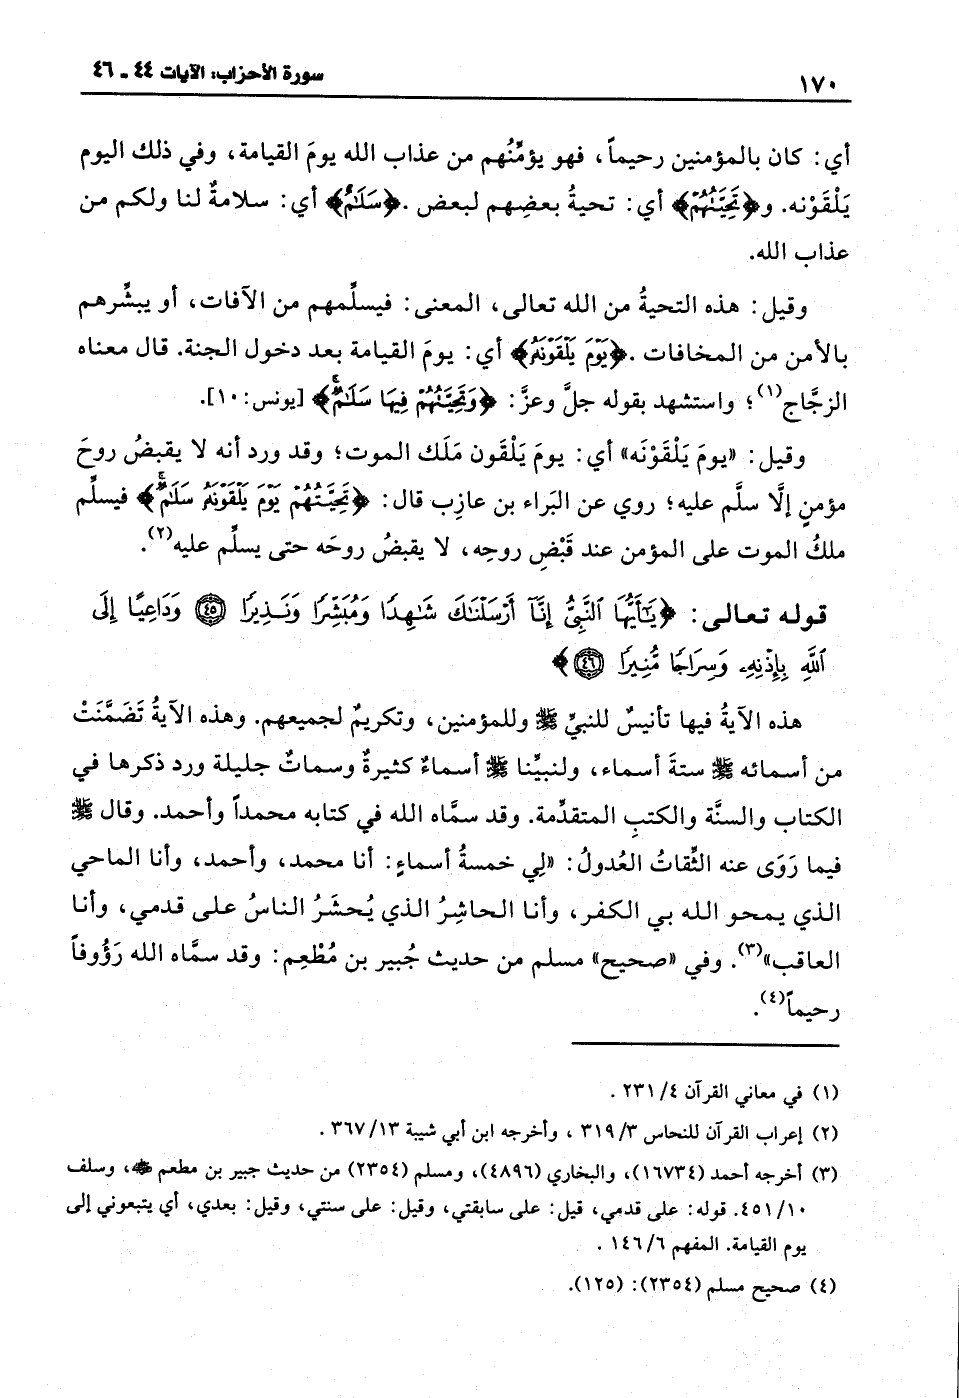 ١٧٠
سورة الأحزاب: الآيات ٤٤ - ٤٦
أي: كان بالمؤمنين رحيماً، فهو يؤمِّنُهم من عذاب الله يومَ القيامة، وفي ذلك اليوم
يَلْقَوْنه. و﴿تَحِيَّتُهُمْ﴾ أي: تحيةُ بعضِهم لبعض. ﴿سَلَامٌ﴾ أي: سلامةٌ لنا ولكم من
عذاب الله.
وقيل: هذه التحيةُ من الله تعالى، المعنى: فيسلِّمهم من الآفات، أو يبشِّرهم
بالأمن من المخافات. ﴿يَوْمَ يَلْقَوْنَهُ﴾ أي: يومَ القيامة بعد دخول الجنة. قال معناه
الزجَّاج(١)؛ واستشهد بقوله جلَّ وعزَّ: ﴿وَتَحِيَّتُهُمْ فِيهَا سَلَامٌ﴾ [يونس: ١٠].
وقيل: «يومَ يَلْقَوْنَه» أي: يومَ يَلْقَون مَلَك الموت؛ وقد ورد أنه لا يقبضُ روحَ
مؤمنٍ إلَّا سلَّم عليه؛ روي عن البَراء بن عازِب قال: ﴿تَحِيَّتُهُمْ يَوْمَ يَلْقَوْنَهُ سَلَامٌ﴾ فيسلِّم
ملكُ الموت على المؤمن عند قَبْضِ روحِه، لا يقبضُ روحَه حتى يسلِّم عليه(٢).
قوله تعالى: ﴿يَٰٓأَيُّهَا ٱلنَّبِيُّ إِنَّآ أَرْسَلْنَٰكَ شَٰهِدًا وَمُبَشِّرًا وَنَذِيرًا ٤٥ وَدَاعِيًا إِلَى
ٱللَّهِ بِإِذْنِهِۦ وَسِرَاجًا مُّنِيرًا ٤٦﴾
هذه الآيةُ فيها تأنيسٌ للنبيِّ ﷺ وللمؤمنين، وتكريمٌ لجميعهم. وهذه الآيةُ تَضَمَّنَتْ
من أسمائه ﷺ ستةَ أسماء، ولنبيِّنا ﷺ أسماءٌ كثيرةٌ وسماتٌ جليلة ورد ذكرها في
الكتاب والسنَّة والكتبِ المتقدِّمة. وقد سمَّاه الله في كتابه محمداً وأحمد. وقال ﷺ
فيما رَوَى عنه الثِّقاتُ العُدولُ: «لِي خمسةُ أسماءٍ: أنا محمد، وأحمد، وأنا الماحي
الذي يمحو الله بي الكفر، وأنا الحاشِرُ الذي يُحشَرُ الناسُ على قدمي، وأنا
العاقب»(٣). وفي «صحيح» مسلم من حديث جُبير بن مُطْعِم: وقد سمَّاه الله رَؤُوفاً
رحيماً(٤).
(١) في معاني القرآن ٢٣١/٤ .
(٢) إعراب القرآن للنحاس ٣١٩/٣ ، وأخرجه ابن أبي شيبة ٣٦٧/١٣ .
(٣) أخرجه أحمد (١٦٧٣٤)، والبخاري (٤٨٩٦)، ومسلم (٢٣٥٤) من حديث جبير بن مطعم ﵁، وسلف
٤٥١/١٠. قوله: على قدمي، قيل: على سابقتي، وقيل: على سنتي، وقيل: بعدي، أي يتبعوني إلى
يوم القيامة. المفهم ١٤٦/٦ .
(٤) صحيح مسلم (٢٣٥٤): (١٢٥).